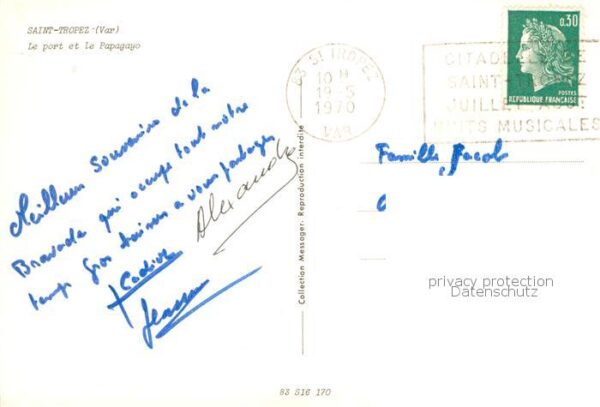 SAINT-TROPEZ (Var)
Le port et le Papagayo
Meilleurs Souvenirs de la
Bravade qui occupe tout notre
temps Gros à vous partager
Alexandre
Famille Jacob
83 ST TROPEZ
10 H
19-5
1970
VAR
CITADELLE
SAINT-TROPEZ
JUILLET AOUT
NUITS MUSICALES
0,30
POSTES
REPUBLIQUE FRANÇAISE
Collection Messager - Reproduction interdite
privacy protection
Datenschutz
83 S16 170